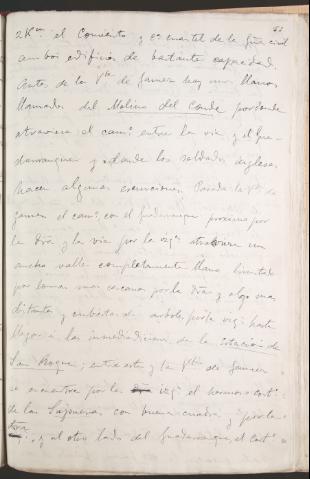 53
2 Km el Convento y Casa cuartel de la Gua civil
ambos edificios de bastante capacidad.
Antes de la Vta de Gamez hay unos llanos
llamados del Molino del Conde por donde
atraviesa el camo entre la via y el Gua-
darranque y donde los soldados ingleses
hacen algunas escursiones. Pasada la Vta de
Gamez el camo con el Guadarranque proximo por
la dra y la via por la izqa atraviesa un
ancho valle completamente llano limitado
por lomas mas cercanas por la dra y algo mas
distantes y cubiertas de arboles por la izqa hasta
llegar a las inmediaciones de la Estacion de
San Roque; entre esta y la Vta de Gamez
se encuentra por la dra izqa el hermoso cortº
de las Lajoneras con buena cuadra y por la
dra, y al otro lado del Guadarranque, el cortº